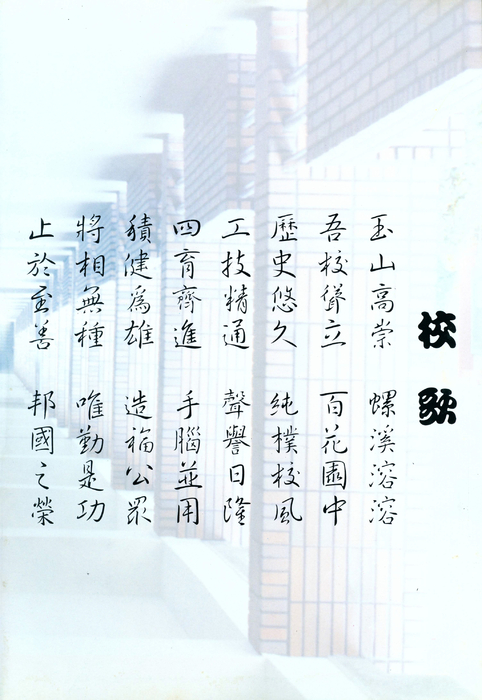 校歌
玉山高崇 螺溪溶溶
吾校聳立 百花園中
歷史悠久 純樸校風
工技精通 聲譽日隆
四育齊進 手腦並用
積健為雄 造福公眾
將相無種 唯勤是功
止於至善 邦國之榮